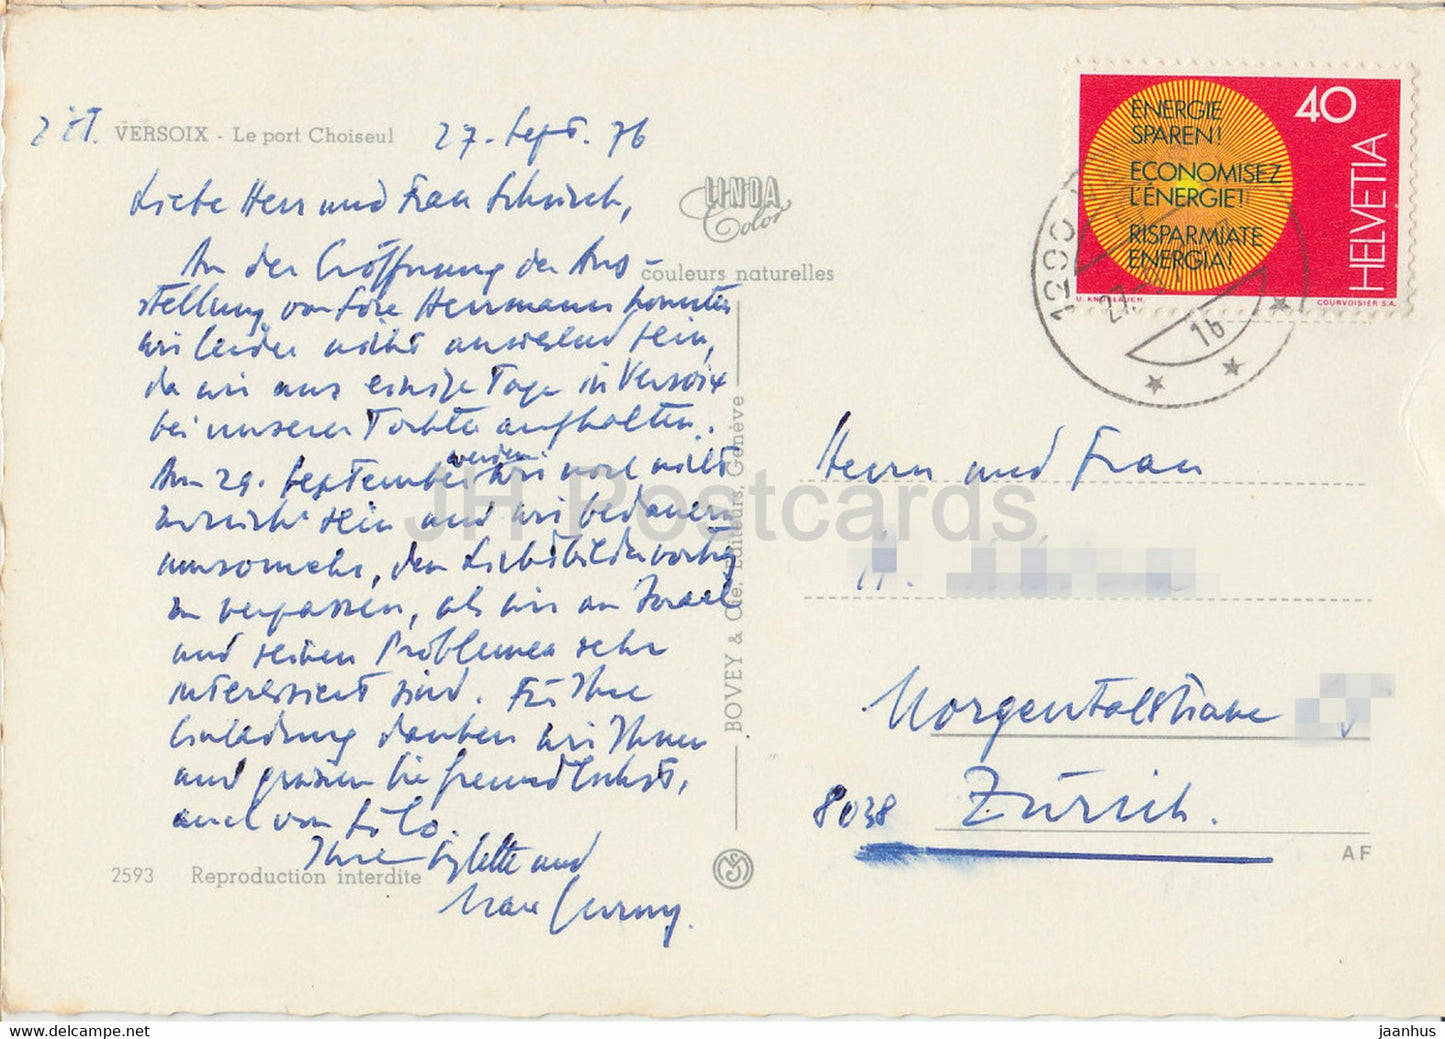 z. Zt. VERSOIX - Le port Choiseul 27. Sept. 76
Liebe Herr und Frau
LINDA
Color
couleurs naturelles
An der Eröffnung der Aus-
stellung von Lore Herrmann konnten
wir leider nicht anwesend sein,
da wir uns einige Tage in Versoix
bei unserer Tochter aufhalten.
Am 29. September werden wir noch nicht
zurück sein und wir bedauern
umsomehr, den Lichtbildervortrag
zu verpassen, als wir an Israel
und seinen Problemen sehr
interessiert sind. Für Ihre
Einladung danken wir Ihnen
und grüssen Sie freundlichst,
auch von Lilo.
Ihre und
2593 Reproduction interdite
BOVEY & Cie, Editeurs, Genève
ENERGIE
SPAREN!
ECONOMISEZ
L'ÉNERGIE!
RISPARMIATE
ENERGIA!
40
HELVETIA
U. KNOBLAUCH.
COURVOISIER S.A.
Herrn und Frau
H.
Morgentalstrasse
8038 Zürich.
AF
JH Postcards
jaanhus